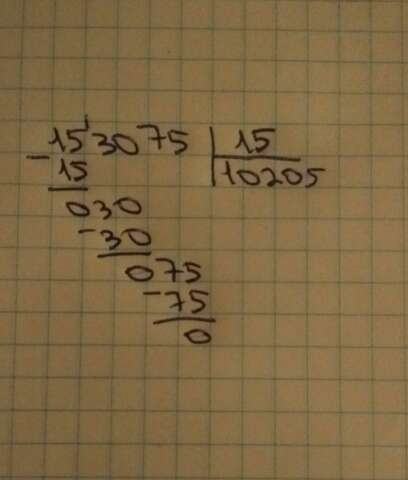 153075 15
- 15 10205
030
- 30
075
- 75
0